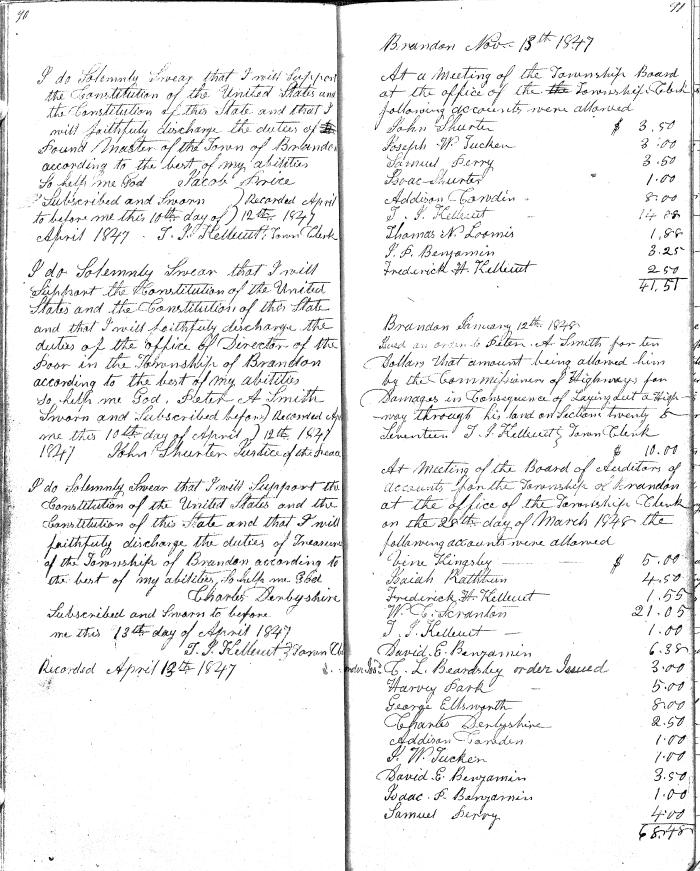 90
I do Solemnly Swear that I will Support
the Constitution of the United States and
the Constitution of this State and that I
will faithfully discharge the duties of
Pound Master of the Town of Brandon
according to the best of my abilities
So help me God Jacob Price
Subscribed and Sworn ) Recorded April
to before me this 10th day of ) 12th 1847
April 1847 - T. J. Kelleutt Town Clerk
I do Solemnly Swear that I will
Support the Constitution of the United
States and the Constitution of this State
and that I will faithfully discharge the
duties of the office of Director of the
Poor in the Township of Brandon
according to the best of my abilities
So help me God. Peter A Smith
Sworn and Subscribed before ) Recorded Ap
me this 10th day of April ) 12th 1847
1847 John Shurter Justice of the Peace
I do Solemnly Swear that I will Support the
Constitution of the United States and the
Constitution of this State and that I will
faithfully discharge the duties of Treasurer
of the Township of Brandon according to
the best of my abilities, So help me God
Charles Derbyshire
Subscribed and Sworn to before
me this 13th day of April 1847
T. J. Kelleutt Town Cl
Recorded April 13th 1847
91
Brandon Nov 13th 1847
At a Meeting of the Township Board
at the office of the the Township Clerk
following accounts were allowed
John Shurter $ 3.50
Joseph W. Tucker 3.00
Samuel Perry 3.50
Isaac Shurter 1.00
Addison Cowden 8.00
T. J. Kelleutt 14.88
Thomas N. Loomis 1.88
I. P. Benjamin 3.25
Frederick H. Kelleutt 2.50
41.51
Brandon January 12th 1848
Issued an order to Peter A. Smith for ten
Dollars that amount being allowed him
by the Commissioners of Highways for
Damages in Consequence of Laying out a High-
way through his land on Sections twenty &
Seventeen T. J. Kelleutt Town Clerk
$ 10.00
At Meeting of the Board of Auditors of
accounts for the Township of Brandon
at the office of the Township Clerk
on the 28th day of March 1848 the
following accounts were allowed
Vine Kingsley $ 5.00
Isaiah Rathbun 4.50
Frederick H. Kelleutt 1.55
W. C. Scranton 21.05
T. J. Kelleutt 1.00
David E. Benjamin 6.38
C. L. Beardsley order Issued 3.00
Harvey Park 5.00
George Ellsworth 8.00
Charles Derbyshire 2.50
Addison Cowden 1.00
J. W. Tucker 1.00
David E. Benjamin 3.50
Isaac P. Benjamin 1.00
Samuel Perry 4.00
68.48